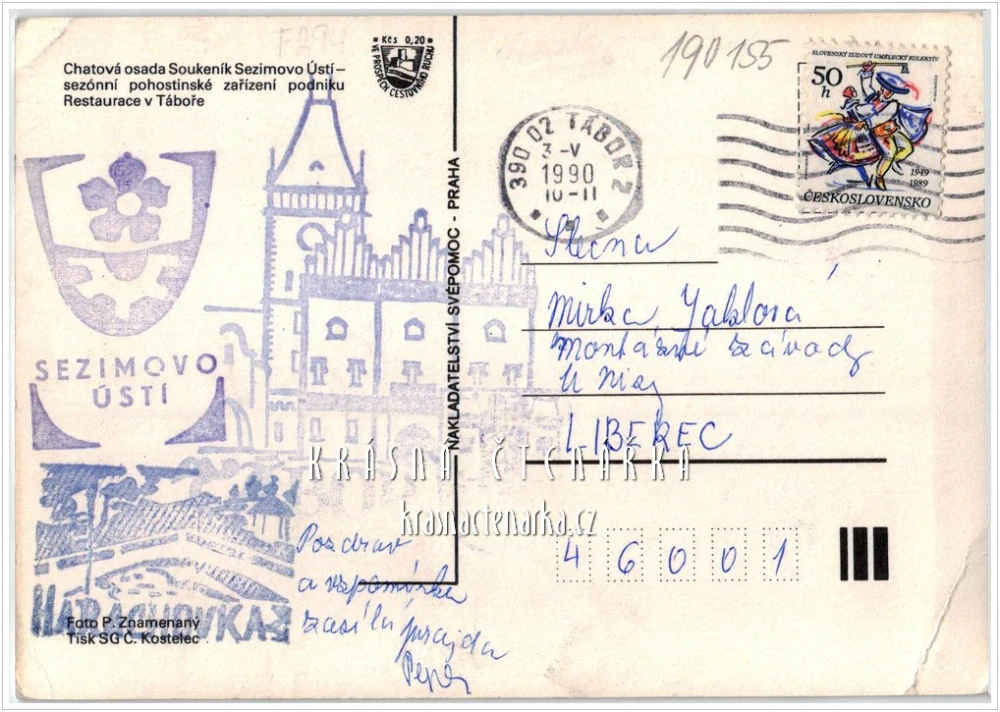 F294
Kčs 0,20
VE PROSPĚCH CESTOVNÍHO RUCHU
Chatová osada Soukeník Sezimovo Ústí –
sezónní pohostinské zařízení podniku
Restaurace v Táboře
190 155
SLOVENSKÝ ĽUDOVÝ UMELECKÝ KOLEKTÍV
50
h
1949
1989
ČESKOSLOVENSKO
390 02 TÁBOR 2
3-V
1990
10-11
NAKLADATELSTVÍ SVÉPOMOC - PRAHA
SEZIMOVO
ÚSTÍ
Slečna
Mirka
Montážní závody
LIBEREC
46001
KRÁSNÁ ČTENÁRKA
krasnactenarka.cz
Pozdrav
a vzpomínku
zasílá
Foto P. Znamenaný
Tisk SG Č. Kostelec